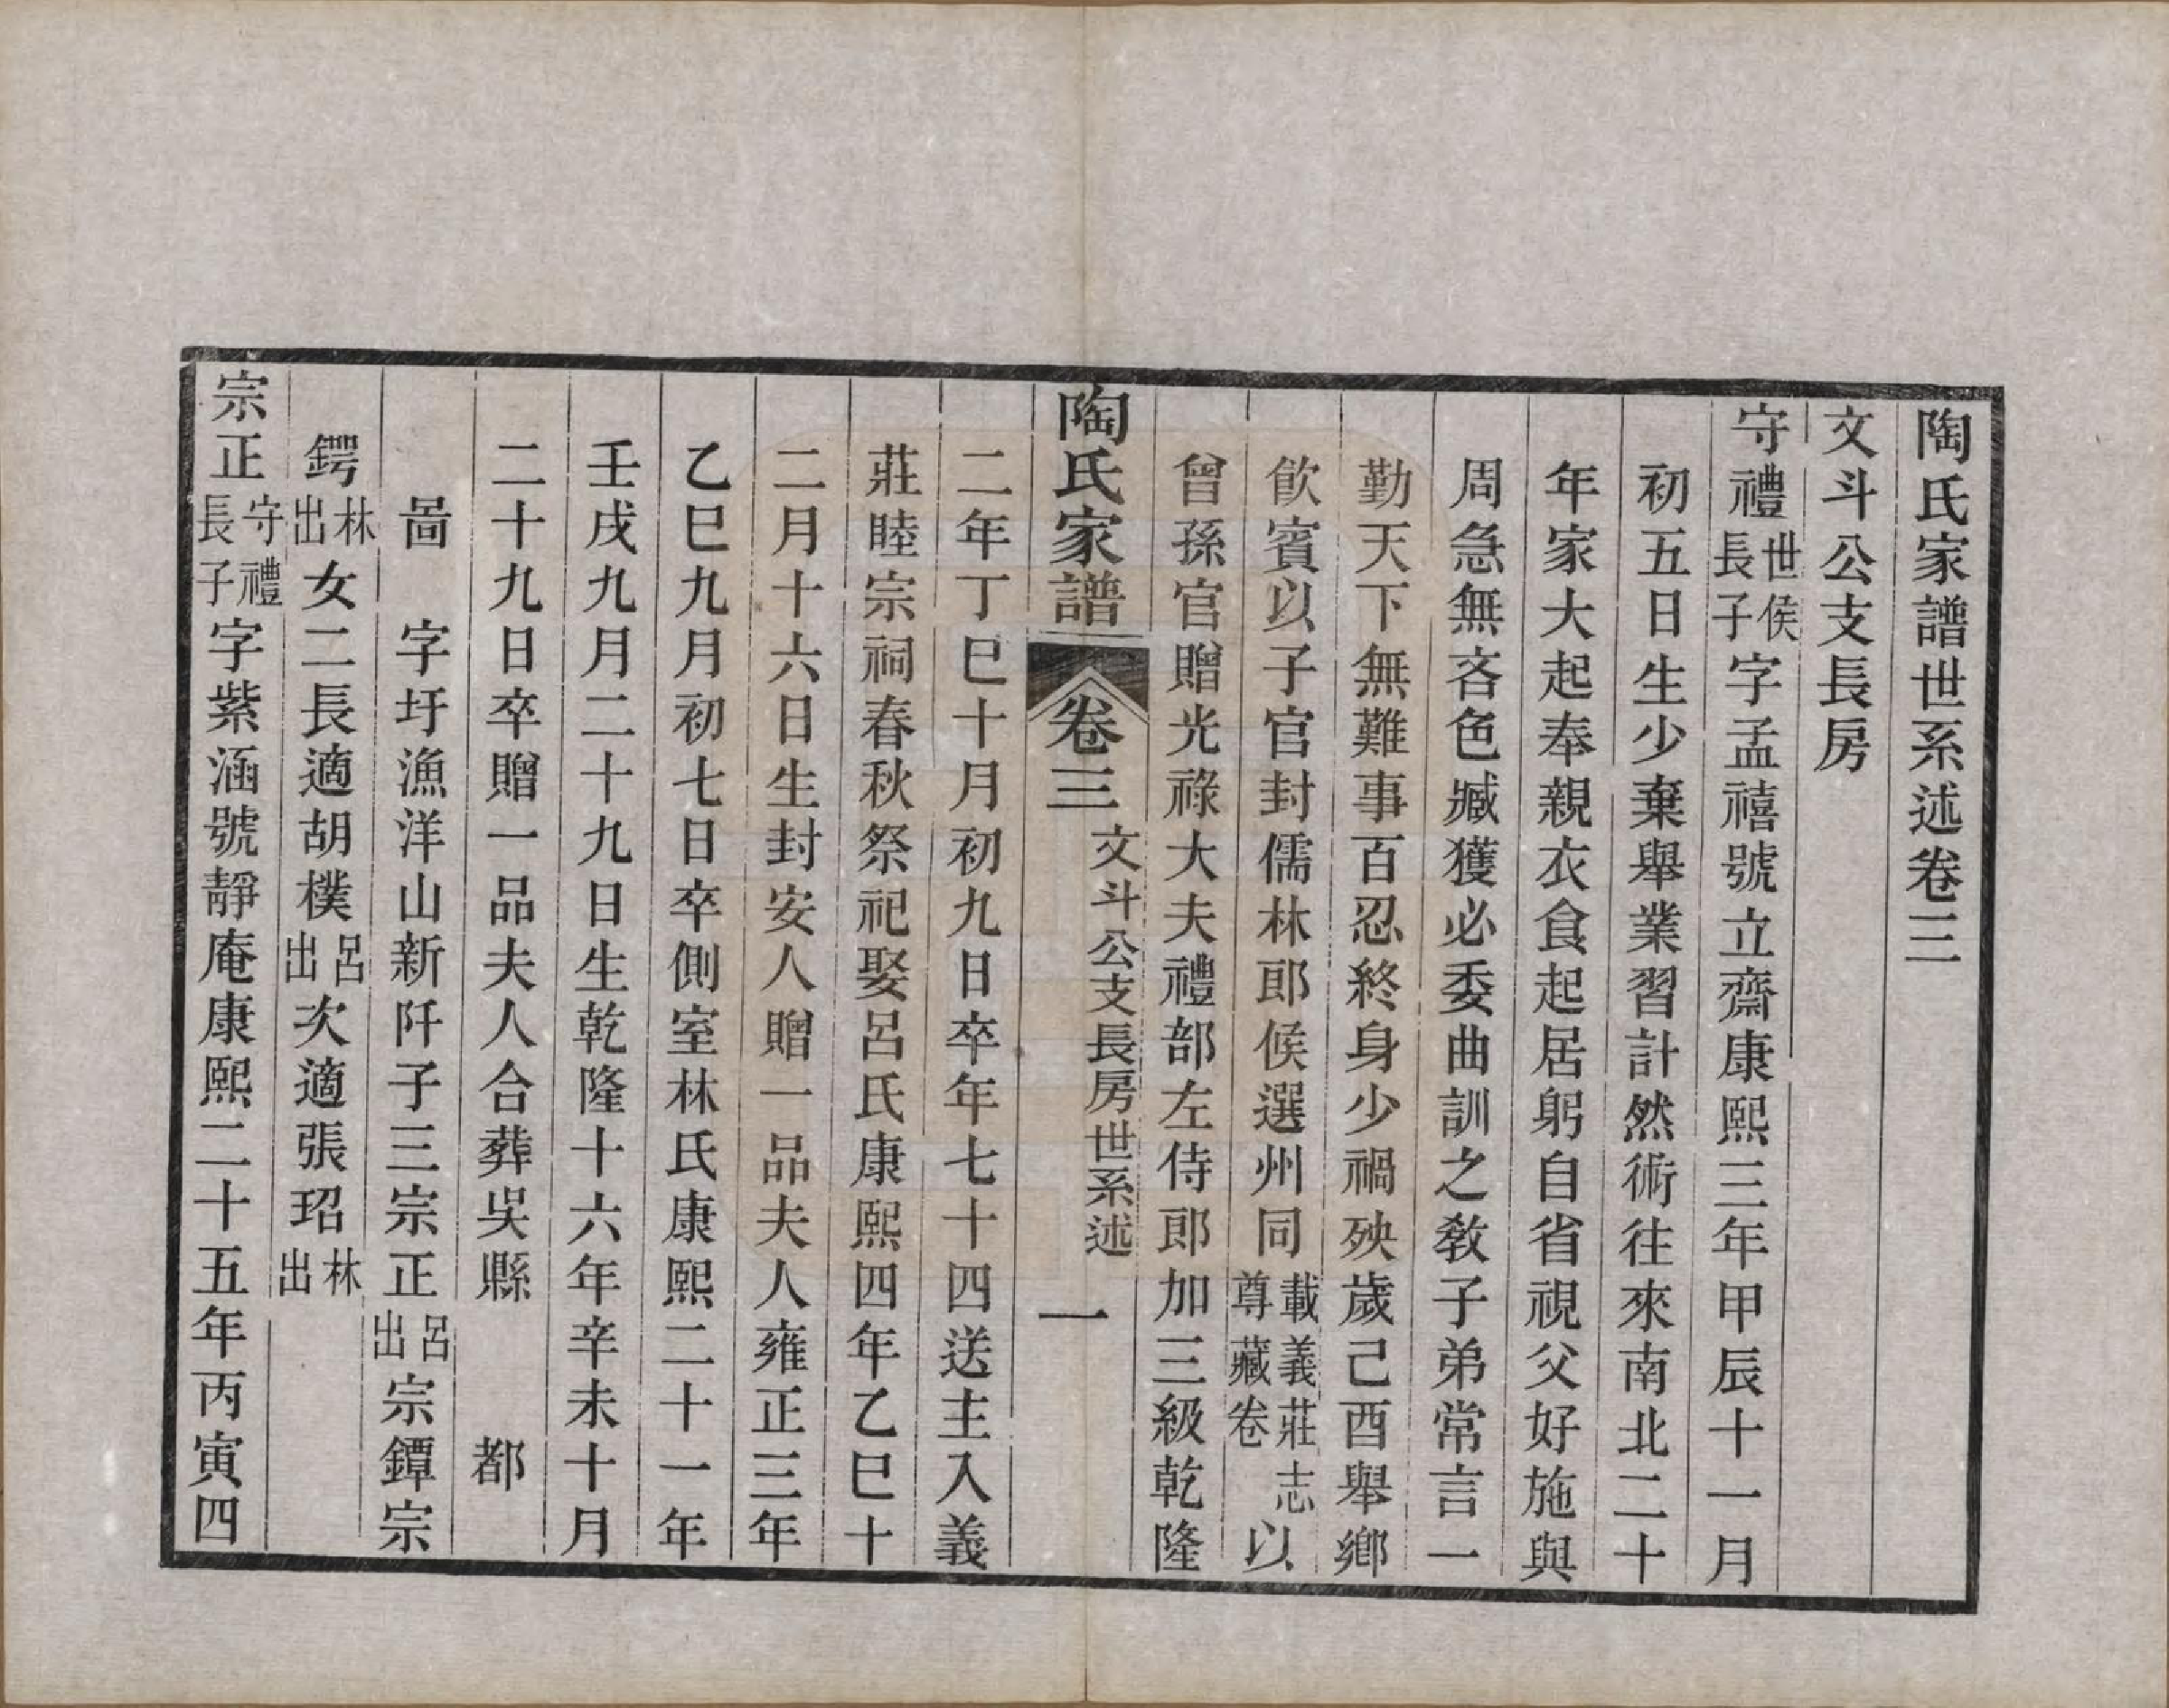 陶氏家譜世系述卷三
文斗公支長房
守禮世侯長子字孟禧號立齋康熙三年甲辰十一月
初五日生少棄舉業習計然術往來南北二十
年家大起奉親衣食起居躬自省視父好施與
周急無吝色臧獲必委曲訓之敎子弟常言一
勤天下無難事百忍終身少禍殃歲己酉舉鄉
飮賓以子官封儒林郎候選州同載義莊志尊藏卷以
曾孫官贈光祿大夫禮部左侍郎加三級乾隆
陶氏家譜 卷三 文斗公支長房世系述 一
二年丁巳十月初九日卒年七十四送主入義
莊睦宗祠春秋祭祀娶呂氏康熙四年乙巳十
二月十六日生封安人贈一品夫人雍正三年
乙巳九月初七日卒側室林氏康熙二十一年
壬戌九月二十九日生乾隆十六年辛未十月
二十九日卒贈一品夫人合葬吳縣 都
啚 字圩漁洋山新阡子三宗正呂出宗鐔宗
鍔林出女二長適胡樸呂出次適張玿林出
宗正守禮長子字紫涵號靜庵康熙二十五年丙寅四